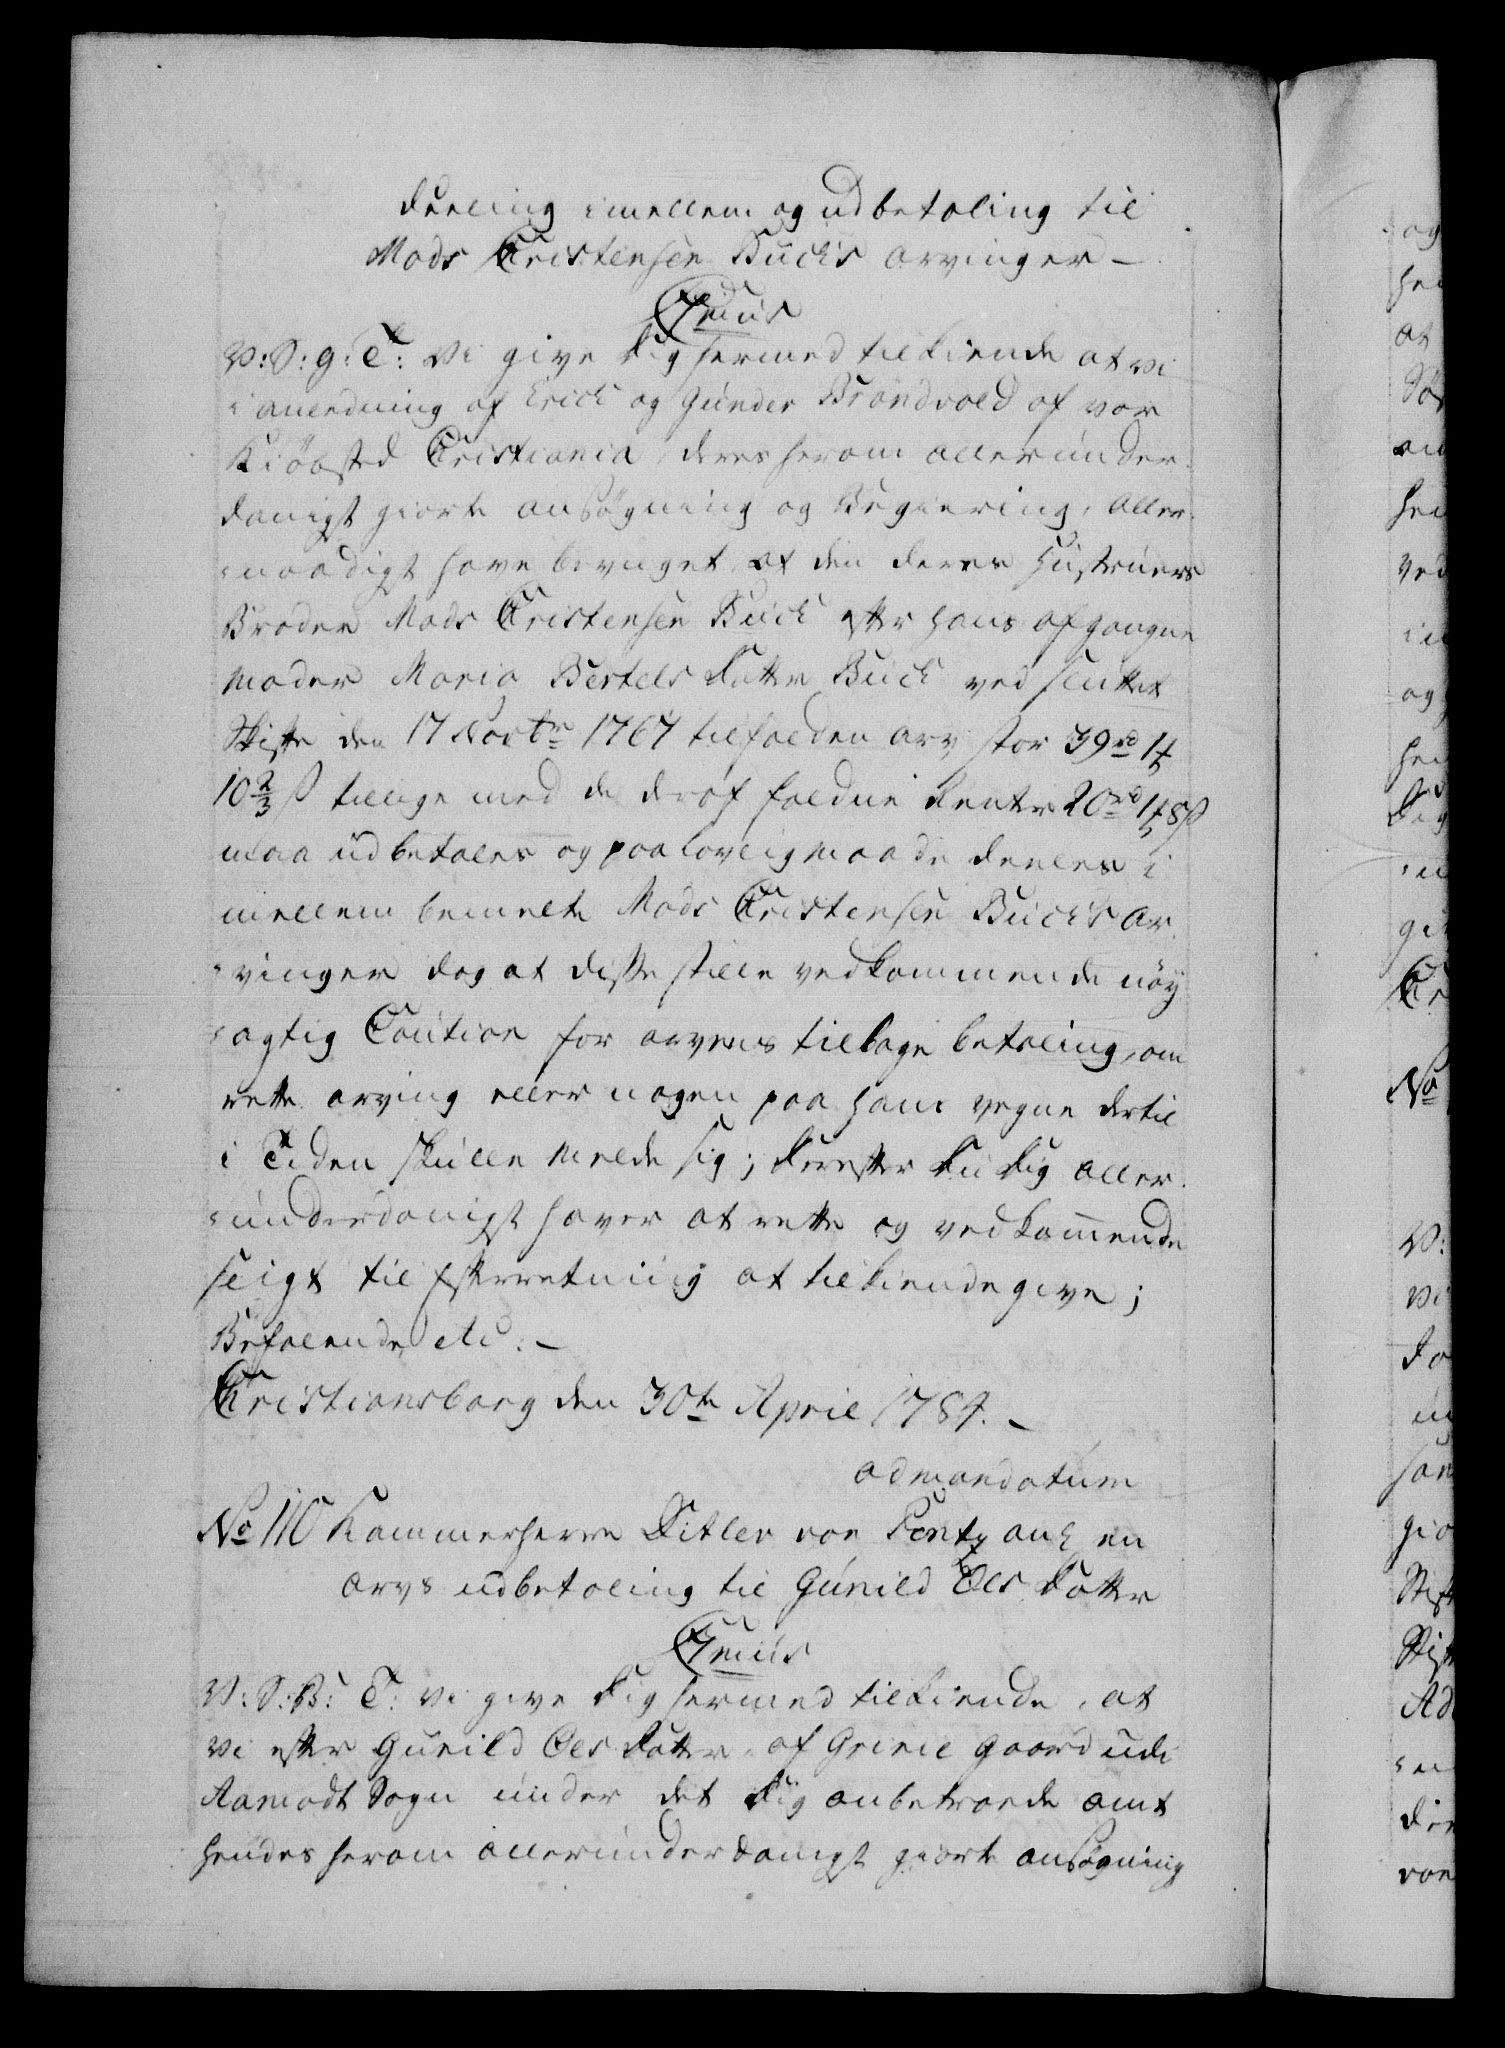 deeling imellem og udbetaling til
Mads Christensen Buchs arvinger –
C 7mus
V: S: G: T: Vi give dig hermed tilkiende at vi
i anledning af Erich og Gunder Brandvold af vor
Kiøbsted Christiania, deres herom allerunder
danigst giorte ansøgning og Begiering, aller
naadigst have bevilget, at den deres Hustruers
Broder Mads Christensen Buch efter hans afgangne
Moder Maria Bertels datter Buch ved sluttet
Skifte den 17 Novbr 1767 tilfalden arv stor 39 rd 1 ℔
10 2/3 ß tillige med de deraf faldne Renter 20 rd 1 ℔ 8 ß
maa udbetales og paa lovlig maade deeles i
mellem bemelte Mads Christensen Buchs ar
vinger dog at disse stille vedkommende nøy
agtig Caution for arvens tilbage betaling, om
rette arving eller nogen paa hans vegne dertil
i Tiden skulle melde sig; derefter du dig aller
underdanigst haver at rette og vedkommende
sligt til Efterretning at tilkiendegive;
Befalende etc: –
Christiansborg den 30te April 1784. –
ad mandatum
No 110 Kammerherre Ditlev von Pentz anl en
arvs udbetaling til Gunild Ols datter
C 7mus
V: S: G: T: Vi give dig hermed tilkiende, at
vi efter Gunild Ols datter af Grinie Gaard udi
Aamodt Sogn under det dig anbetroede amt
hendes herom allerunderdanigst giorte ansøgning